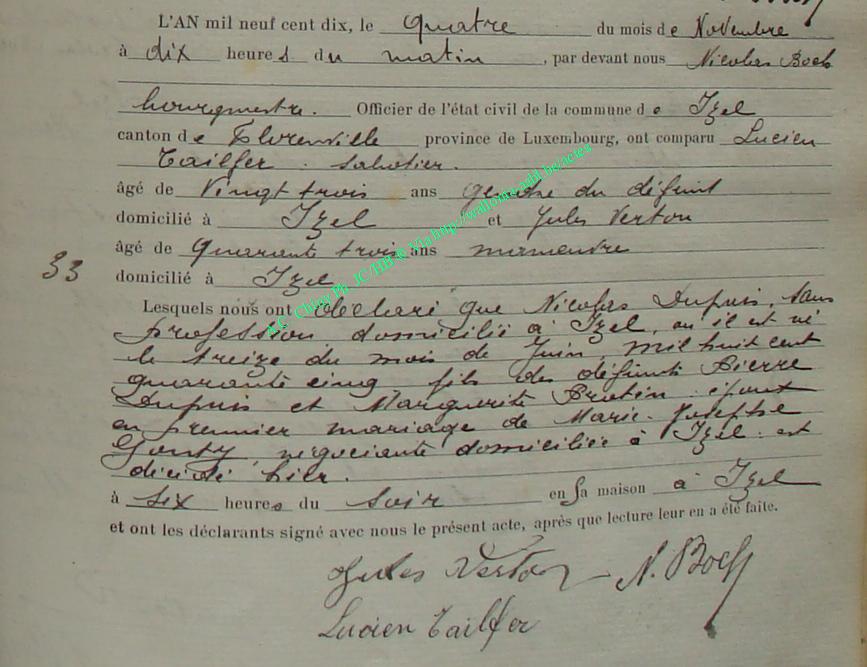 L'AN mil neuf cent dix, le quatre du mois de Novembre
à dix heures du matin, par devant nous Nicolas Boch
bourgmestre. Officier de l'état civil de la commune de Izel
canton de Florenville province de Luxembourg, ont comparu Lucien
Tailfer. sabotier.
âgé de Vingt trois ans gendre du défunt
domicilié à Izel et Jules Verton
âgé de quarante trois ans manoeuvre
33 domicilié à Izel
Lesquels nous ont déclaré que Nicolas Dupuis, sans
profession domicilié à Izel, où il est né
le treize du mois de Juin, mil huit cent
quarante cinq fils des défunts Pierre
Dupuis et Marguerite époux
en premier mariage de Marie-Josèphe
négociante domiciliée à Izel. est
décédé hier.
à six heures du soir en sa maison à Izel
et ont les déclarants signé avec nous le présent acte, après que lecture leur en a été faite.
Jules Verton N. Boch
Lucien Tailfer
A.C. Chiny Ph. JC/HB ® Via http://wallonie.ardt.be/actes